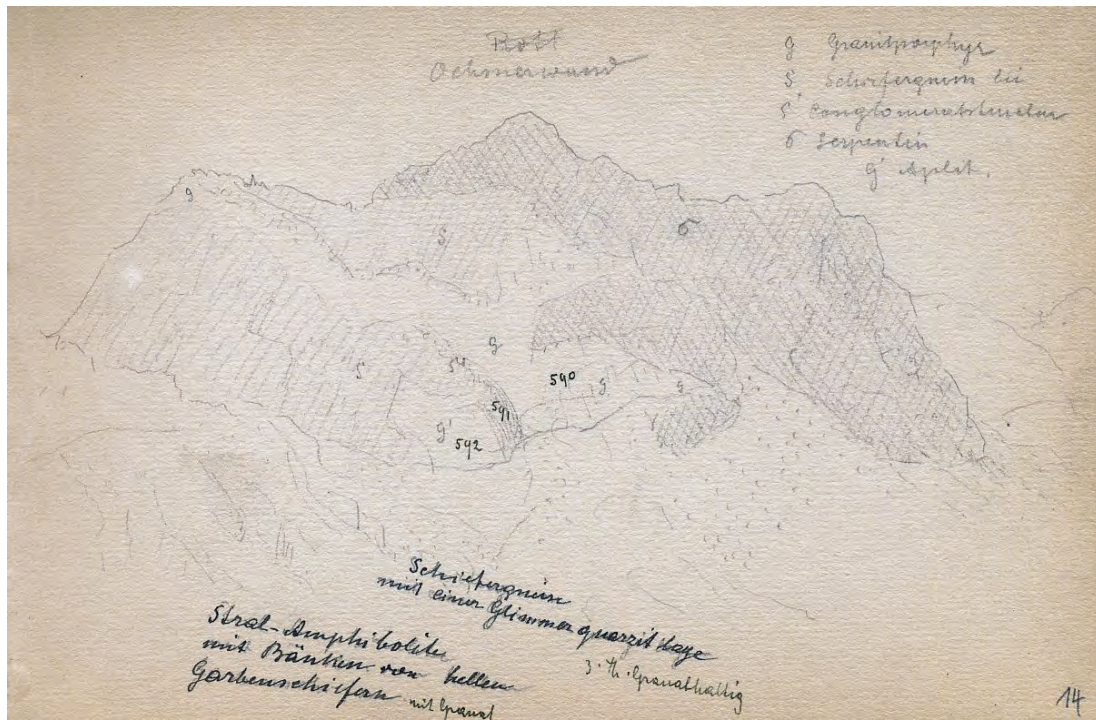 Rott
Ochnerwand
g Granitporphyr
S Schiefergneiss bei
S' Conglomeratstructur
σ Serpentin
g' Aplit.
g
S
σ
g
S'
S''
590
g
g
591
g'
592
Schiefergneise
mit einer Glimmerquarzit Lage
z. Th. Granathaltig
Stral-Amphibolite
mit Bänken von hellen
Garbenschiefern mit Granat
14